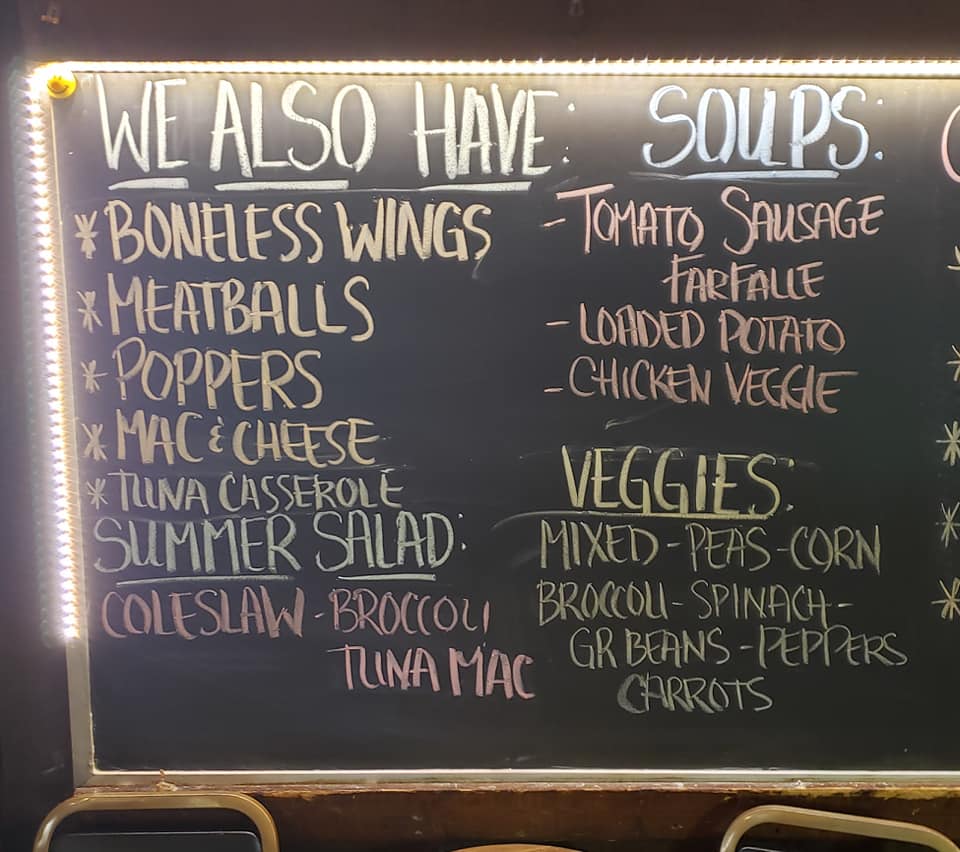 WE ALSO HAVE:
* BONELESS WINGS
* MEATBALLS
* POPPERS
* MAC & CHEESE
* TUNA CASSEROLE
SUMMER SALAD:
COLESLAW - BROCCOLI
TUNA MAC
SOUPS:
- TOMATO SAUSAGE
FARFALLE
- LOADED POTATO
- CHICKEN VEGGIE
VEGGIES:
MIXED - PEAS - CORN
BROCCOLI - SPINACH -
GR BEANS - PEPPERS
CARROTS